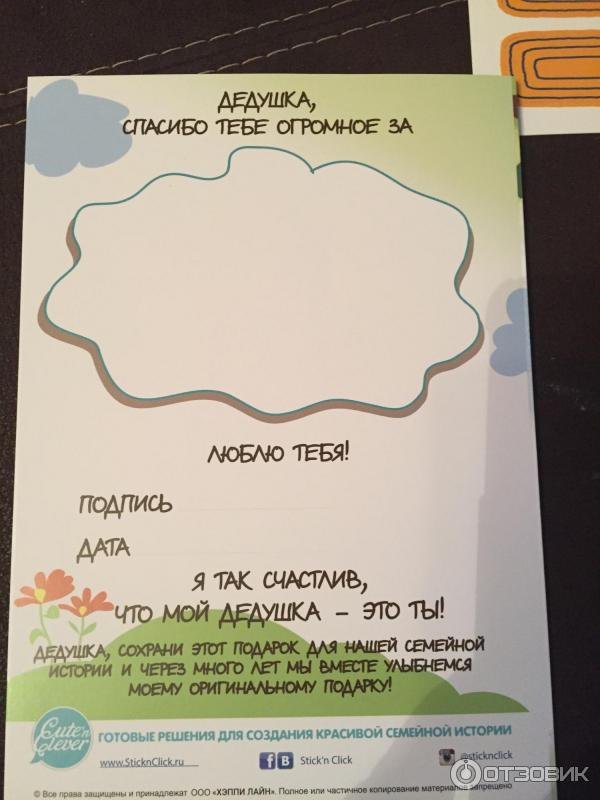 ДЕДУШКА,
СПАСИБО ТЕБЕ ОГРОМНОЕ ЗА
ЛЮБЛЮ ТЕБЯ!
ПОДПИСЬ
ДАТА
Я ТАК СЧАСТЛИВ,
ЧТО МОЙ ДЕДУШКА – ЭТО ТЫ!
ДЕДУШКА, СОХРАНИ ЭТОТ ПОДАРОК ДЛЯ НАШЕЙ СЕМЕЙНОЙ
ИСТОРИИ И ЧЕРЕЗ МНОГО ЛЕТ МЫ ВМЕСТЕ УЛЫБНЕМСЯ
МОЕМУ ОРИГИНАЛЬНОМУ ПОДАРКУ!
Cute'n Clever
ГОТОВЫЕ РЕШЕНИЯ ДЛЯ СОЗДАНИЯ КРАСИВОЙ СЕМЕЙНОЙ ИСТОРИИ
www.SticknClick.ru f B Stick'n Click @sticknclick
© Все права защищены и принадлежат ООО «ХЭППИ ЛАЙН». Полное или частичное копирование материалов запрещено
ОТЗОВИК